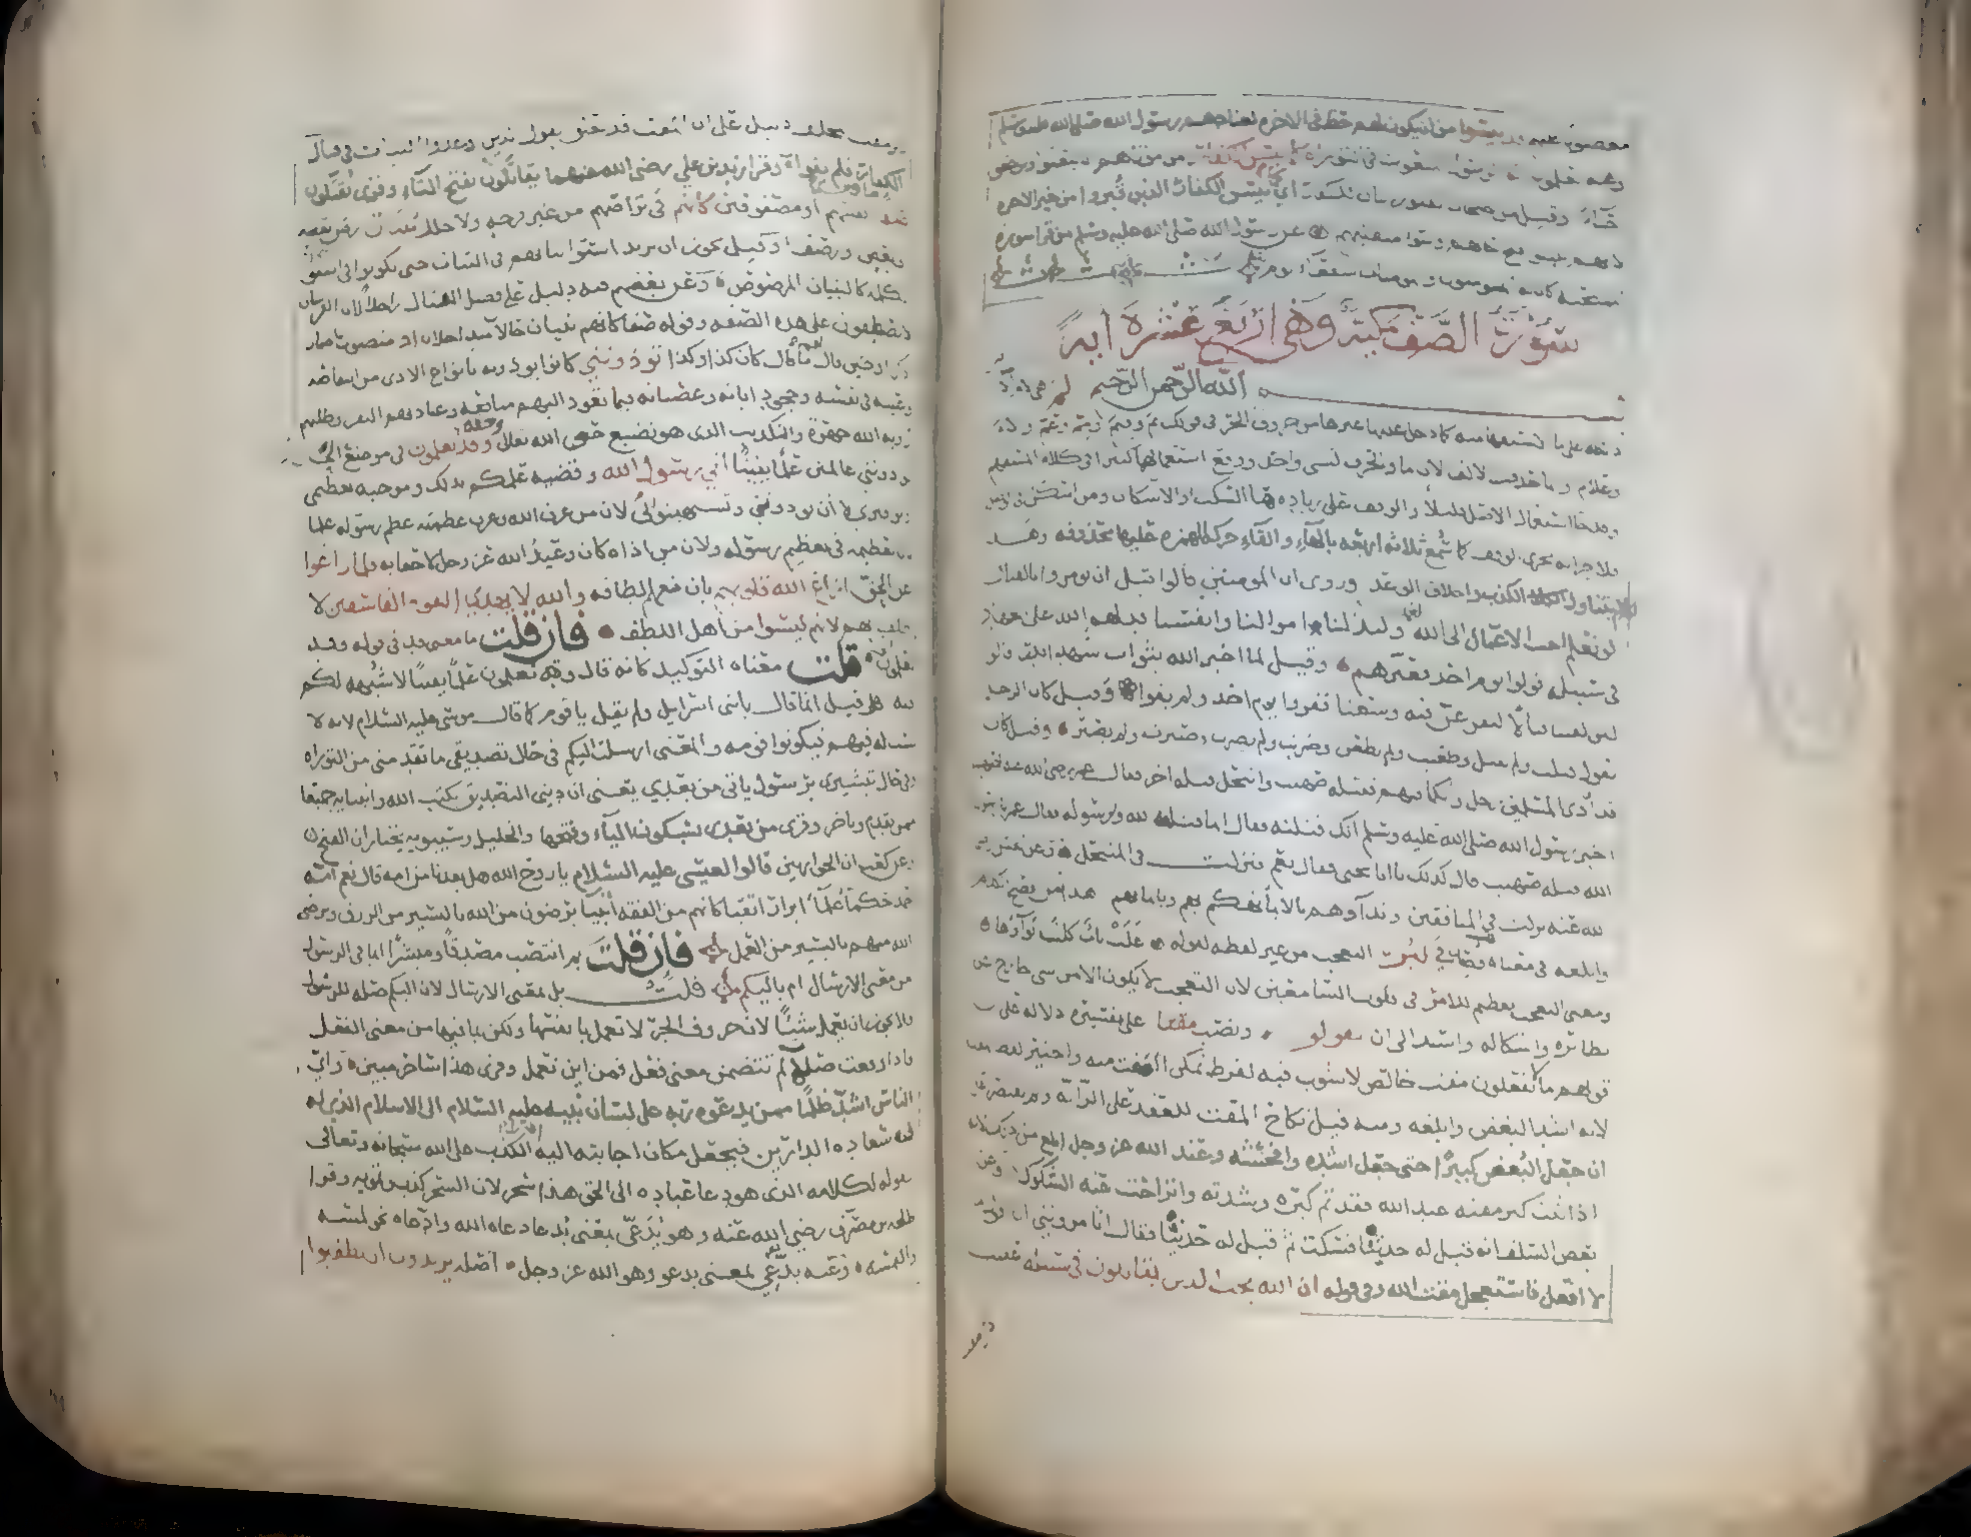 مغضوب عليه قد يئسوا من ان يكون لهم حظ في الاخره لعنادهم رسول الله صلى الله عليه وسلم
وهم يعلمون انه الرسول المنعوت في التوراه كما يئس الكفار من موتاهم ان يبعثوا ويرجعوا
احياء وقيل من اصحاب القبور بيان للكفار اي كما يئس الكفار الذين قبروا من خير الاخره
لانهم تبينوا قبح حالهم وسوا منقلبهم عن رسول الله صلى الله عليه وسلم من قرا سوره
الممتحنه كان له المومنون والمومنات شفعآء يوم
سورة الصف مكية وهي اربع عشرة اية
بسم الله الرحمن الرحيم لم هي لام
داخله على ما الاستفهاميه كما دخل عليها غيرها من حروف الجر في قولك بم وفيم ومم وعم والام
وعلام وانما حذفت الالف لان ما والحرف كشي واحد ووقع استعمالهما كثيرا في كلام المستفهم
وقد جا استعمال الاصل قليلا والوقف على زياده ها السكت او الاسكان ومن اسكن في الوصل
فلاجرائه مجرى الوقف كما سُمع ثلاثه اربعه بالهاء والقاء حركه الهمزه عليها محذوفه وهذا
الكلام يتناول الكذب واخلاف الوعد وروى ان المومنين قالوا قبل ان يومروا بالقتال
لو نعلم احب الاعمال الى الله لعملناه ولبذلنا فيه اموالنا وانفسنا فدلهم الله على الجهاد
في سبيله فولوا يوم احد فعيرهم وقيل لما اخبر الله بثواب شهدا بدر قالوا
لئن لقينا قتالا لنفرغن فيه وسعنا ففروا يوم احد ولم يفوا وقيل كان الرجل
يقول قتلت ولم يقتل وطعنت ولم يطعن وضربت ولم يضرب وصبرت ولم يصبر وقيل كان
قد اذى المسلمين رجل ونكا فيهم فقتله صهيب وانتحل قتله اخر فقال عمر رضي الله عنه لصهيب
اخبر رسول الله صلى الله عليه وسلم انك قتلته فقال انما قتلته لله ولرسوله فقال عمر يا رسول
الله قتله صهيب قال كذلك يا ابا يحيى فقال نعم فنزلت في المنتحل وعن الحسن رضي
الله عنه نزلت في المنافقين وندآوهم بالايمان تهكم بهم وبايمانهم هذا من افصح كلام
وابلغه في معناه قصد في كبُرت التعجب من غير لفظه كقوله غلت نابٌ كليبٌ بوآؤها
ومعنى التعجب تعظيم الامر في قلوب السامعين لان التعجب لا يكون الا من شي خارج عن
نظائره واشكاله واسند الى ان تقولوا ونصب مقتا على تفسيره دلاله على ان
قولهم ما لا يفعلون مقت خالص لاشوب فيه لفرط تمكن المقت منه واختير لفظ المقت
لانه اشد البغض وابلغه ومنه قيل نكاح المقت للعقد على الرآبه ولم يقتصر على
ان جعل البغض كبيرا حتى جعل اشده وافحشه وعند الله عز وجل ابلغ من ذلك لانه
اذا ثبت كبر مقته عند الله فقد تم كبره وشدته وانزاحت عنه الشكوك وعن
بعض السلف انه قيل له حدثنا فسكت ثم قيل له حدثنا فقال اتامرونني ان اقول
ما لا افعل فاستعجل مقت الله وفي قوله ان الله يحب الذين يقاتلون في سبيله عقيب
ذكر مقت المخلف دليل على ان المقت قد تعلق بقول الذين وعدوا الثبات في قتال
الكفار فلم يفوا وقرا زيد بن علي رضي الله عنهما يقاتَلون بفتح التآء وقرى يُقتَلون
صفا صافين انفسهم او مصفوفين كانهم في تراصهم من غير فرجه ولا خلل بنيان رص بعضه
الى بعض ورصف او قيل يجوز ان يريد استوا نياتهم في الثبات حتى يكونوا في اجتماع
الكلمه كالبنيان المرصوص وعن بعضهم فيه دليل على فضل القتال راجلا لان الفرسان
لا يصطفون على هذه الصفه وقوله صفا كانهم بنيان حالان متداخلان اذ منصوب باضمار
اذكر او حين قال لهم ما قال كان كذا وكذا تؤذونني كانوا يوذونه بانواع الاذى من انتقاصه
وعيبه في نفسه وجحود اياته وعصيانه فيما تعود اليهم منافعه وعبادتهم البقر وطلبهم
روية الله جهرة والتكذيب الذي هو تضييع حق الله تعالى وحقه وقد تعلمون في موضع الحال
اي توذونني عالمين علما يقينًا أني رسول الله وقضيه علمكم بذلك وموجبه تعظيمي
وتوقيري لا ان توذونني وتستهينوا بي لان من عرف الله وعرف عظمته عظم رسوله علما
بان تعظيمه في تعظيم رسوله ولان من اذاه كان وعيد الله عز وجل لاحقا به فلما زاغوا
عن الحق ازاغ الله قلوبهم بان منعهم الطافه والله لا يهدي القوم الفاسقين لا
يلطف بهم لانهم ليسوا من أهل اللطف فان قلت ما معنى قد في قوله وقد
تعلمون قلت معناه التوكيد كانه قال وقد تعلمون علمًا يقينًا لاشبهه لكم
فيه قيل انما قال يا بني اسرايل ولم يقل يا قوم كما قال موسى عليه السلام لانه لا
نسب له فيهم فيكونوا قومه والمعنى ارسلت اليكم في حال تصديقي ما تقدمني من التوراه
وفي حال تبشيري برسول ياتي من بعدي يعني ان ديني التصديق بكتب الله وانبيايه جميعا
ممن تقدم وتاخر وقرى من بعدي بسكون اليآء وفتحها والخليل وسيبويه يختاران الفتح
وعن كعب ان الحواريين قالوا لعيسى عليه السلام يا روح الله هل بعدنا من امه قال نعم امه
احمد حكمآ علمآ ابرار اتقيا كانهم من الفقه أنبيآ يرضون من الله باليسير من الرزق ويرضى
الله منهم باليسير من العمل فان قلت بم انتصب مصدقًا ومبشرًا ابما في الرسول
من معنى الارسال ام باليكم قلت بل بمعنى الارسال لان اليكم صله للرسول
فلا يجوز ان يعمل شيئًا لان حروف الجر لا تعمل بانفسها ولكن بما فيها من معنى الفعل
فاذا وقعت صلة لم تتضمن معنى فعل فمن اين تعمل وقرى هذا ساحر مبين وايّ
الناس اشدّ ظلمًا ممن يدعوه ربه على لسان نبيه عليه السلام الى الاسلام الذي له
فيه سعاده الدارين فيجعل مكان اجابته اليه افتراء الكذب على الله سبحانه وتعالى
بقوله لكلامه الذي هو دعا عباده الى الحق هذا سحر لان السحر كذب وتمويه وقرا
طلحه بن مصرّف رضي الله عنه وهو يُدَّعى بمعنى يُدعا دعاه الله وادعاه نحو لمسه
والتمسه وعنه يدّعي بمعنى يدعو وهو الله عز وجل اصله يريدون ان يطفيوا